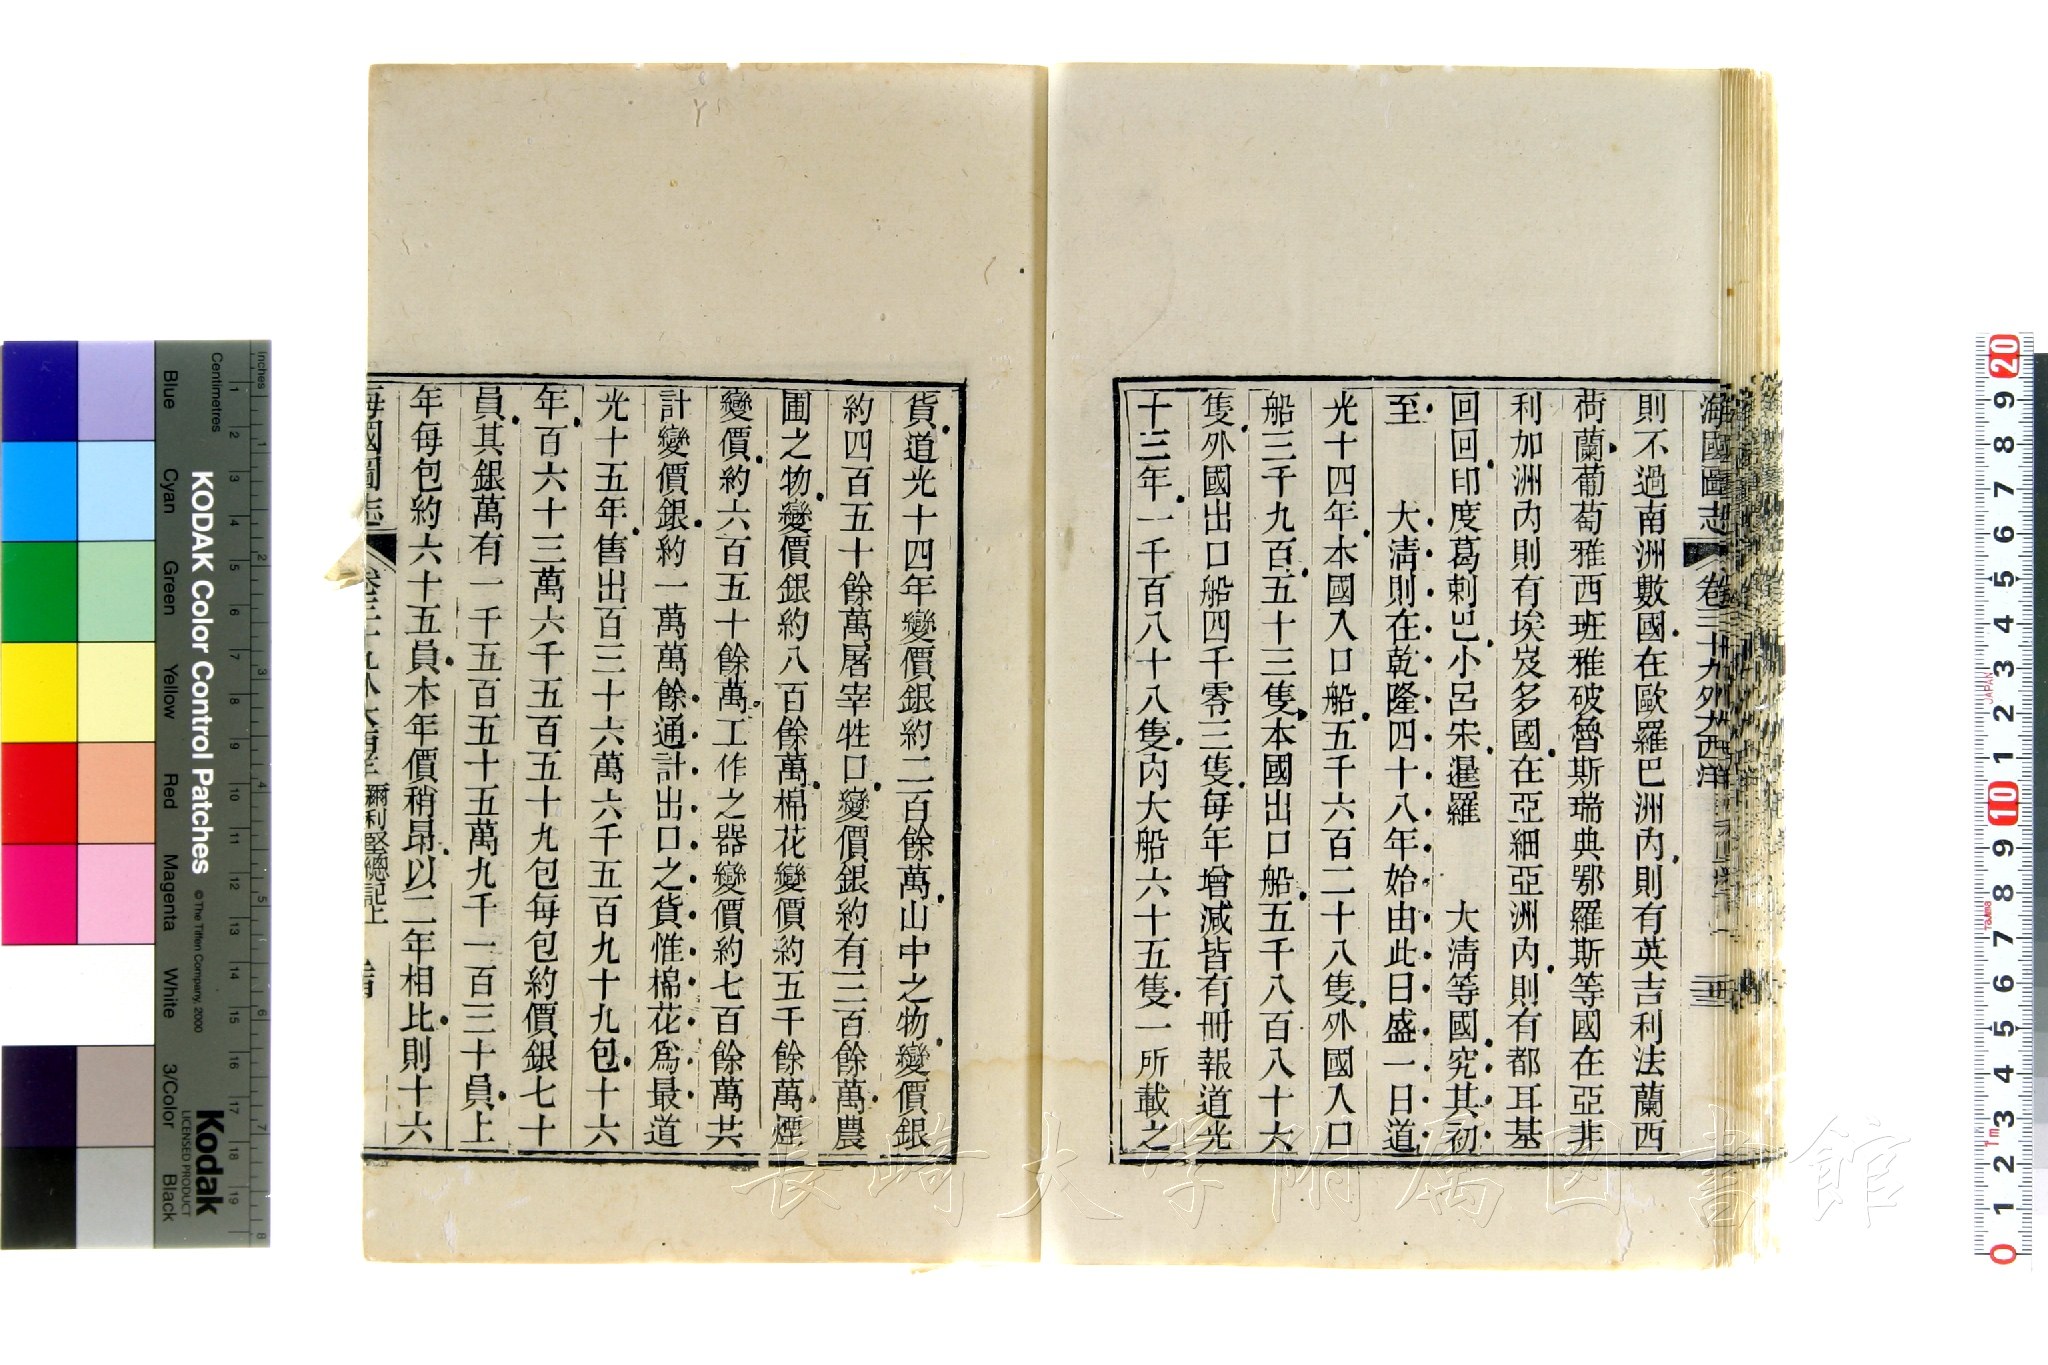 海國圖志 卷三十九外大西洋
則不過南洲數國在歐羅巴洲內則有英吉利法蘭西
荷蘭葡萄雅西班雅破魯斯瑞典鄂羅斯等國在亞非
利加洲內則有埃岌多國在亞細亞洲內則有都耳基
回回印度葛剌巴小呂宋暹羅 大淸等國究其初
至 大淸則在乾隆四十八年始由此日盛一日道
光十四年本國入口船五千六百二十八隻外國入口
船三千九百五十三隻本國出口船五千八百八十六
隻外國出口船四千零三隻每年增減皆有冊報道光
十三年一千百八十八隻內大船六十五隻一所載之
貨道光十四年變價銀約二百餘萬山中之物變價銀
約四百五十餘萬屠宰牲口變價銀約有三百餘萬農
圃之物變價銀約八百餘萬棉花變價約五千餘萬煙
變價約六百五十餘萬工作之器變價約七百餘萬共
計變價銀約一萬萬餘通計出口之貨惟棉花爲最道
光十五年售出百三十六萬六千五百九十九包十六
年百六十三萬六千五百五十九包每包約價銀七十
員其銀萬有一千五百五十五萬九千一百三十員上
年每包約六十五員本年價稍昂以二年相比則十六
海國圖志 彌利堅總記上
KODAK Color Control Patches
© The Tiffen Company, 2000
Kodak
LICENSED PRODUCT
Inches 1 2 3 4 5 6 7 8
Centimetres 1 2 3 4 5 6 7 8 9 10 11 12 13 14 15 16 17 18 19
Blue Cyan Green Yellow Red Magenta White 3/Color Black
20 9 8 7 6 5 4 3 2 1 10 9 8 7 6 5 4 3 2 1 0
JAPAN
長崎大学附属図書館